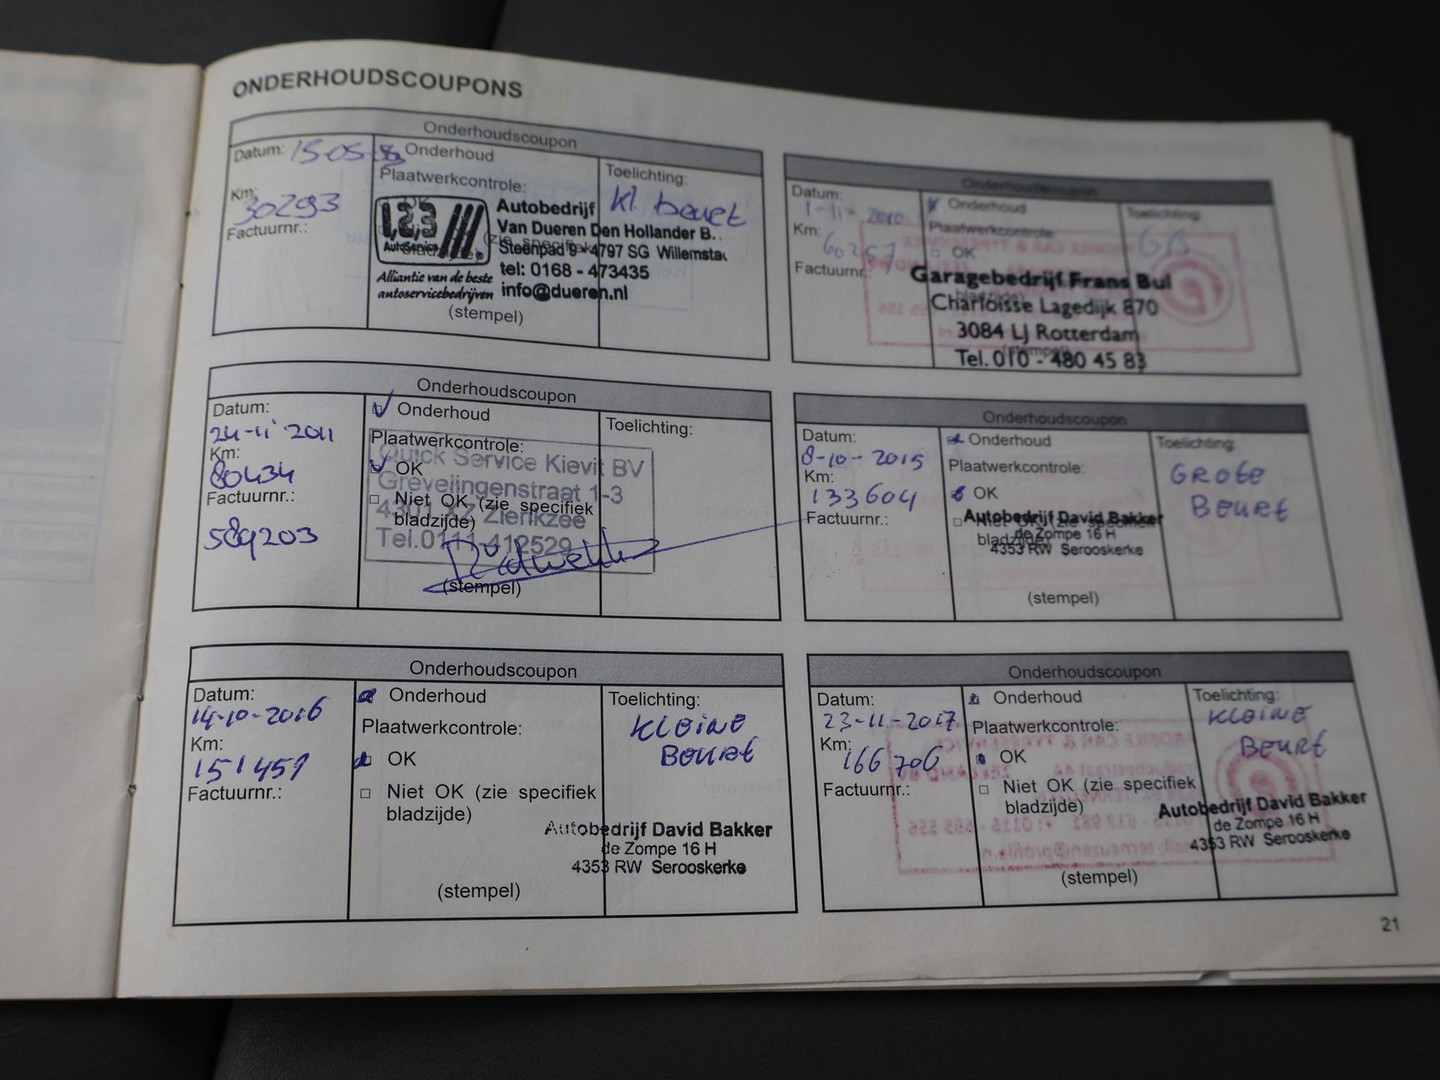 ONDERHOUDSCOUPONS
Onderhoudscoupon
Datum: 15-05-
Onderhoud
Km: 30293
Plaatwerkcontrole:
Factuurnr.:
Toelichting:
kl. beurt
1,2,3
AutoService
Alliantie van de beste
autoservicebedrijven
Autobedrijf
Van Dueren Den Hollander B.
Steenpad 9 - 4797 SG Willemsta
tel: 0168 - 473435
info@dueren.nl
(stempel)
Onderhoudscoupon
Datum:
1-11-2010
Km:
60267
Factuurnr.:
Onderhoud
Plaatwerkcontrole
OK
Toelichting:
GB
Garagebedrijf Frans Bul
Charloisse Lagedijk 870
3084 LJ Rotterdam
Tel. 010 - 480 45 83
Onderhoudscoupon
Datum:
24-11-2011
Km:
80434
Factuurnr.:
589203
Onderhoud
Plaatwerkcontrole:
OK
Niet OK (zie specifiek
bladzijde)
Quick Service Kievit BV
Grevelingenstraat 1-3
4301 XZ Zierikzee
Tel.0111-412529
(stempel)
Toelichting:
Onderhoudscoupon
Datum:
8-10-2015
Km:
133604
Factuurnr.:
Onderhoud
Plaatwerkcontrole:
OK
Autobedrijf David Bakker
de Zompe 16 H
4353 RW Serooskerke
(stempel)
Toelichting:
GROTE
BEURT
Onderhoudscoupon
Datum:
14-10-2016
Km:
151451
Factuurnr.:
Onderhoud
Plaatwerkcontrole:
OK
Niet OK (zie specifiek
bladzijde)
Toelichting:
KLEINE
BEURT
Autobedrijf David Bakker
de Zompe 16 H
4353 RW Serooskerke
(stempel)
Onderhoudscoupon
Datum:
23-11-2017
Km:
166706
Factuurnr.:
Onderhoud
Plaatwerkcontrole:
OK
Niet OK (zie specifiek
bladzijde)
Toelichting:
KLEINE
BEURT
Autobedrijf David Bakker
de Zompe 16 H
4353 RW Serooskerke
(stempel)
21